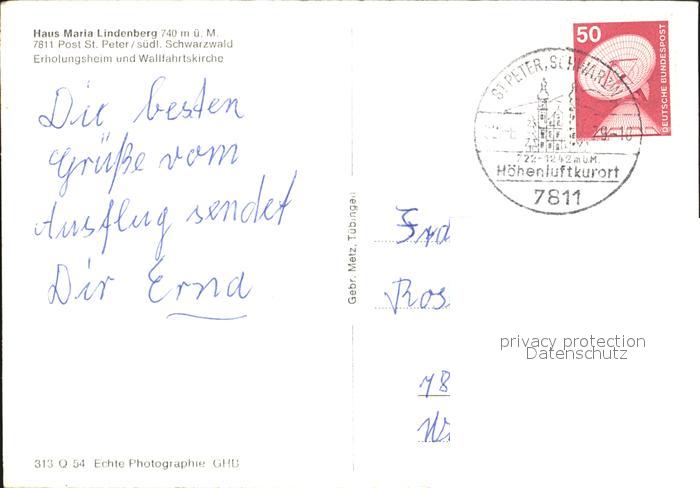 Haus Maria Lindenberg 740 m ü. M.
7811 Post St. Peter/südl. Schwarzwald
Erholungsheim und Wallfahrtskirche
Die besten
Grüße vom
Ausflug sendet
Dir Erna
Gebr. Metz, Tübingen
50
DEUTSCHE BUNDESPOST
ST. PETER, SCHWARZW
722-1242 m ü.M.
Höhenluftkurort
7811
Ros
78
privacy protection
Datenschutz
313 Q 54 Echte Photographie